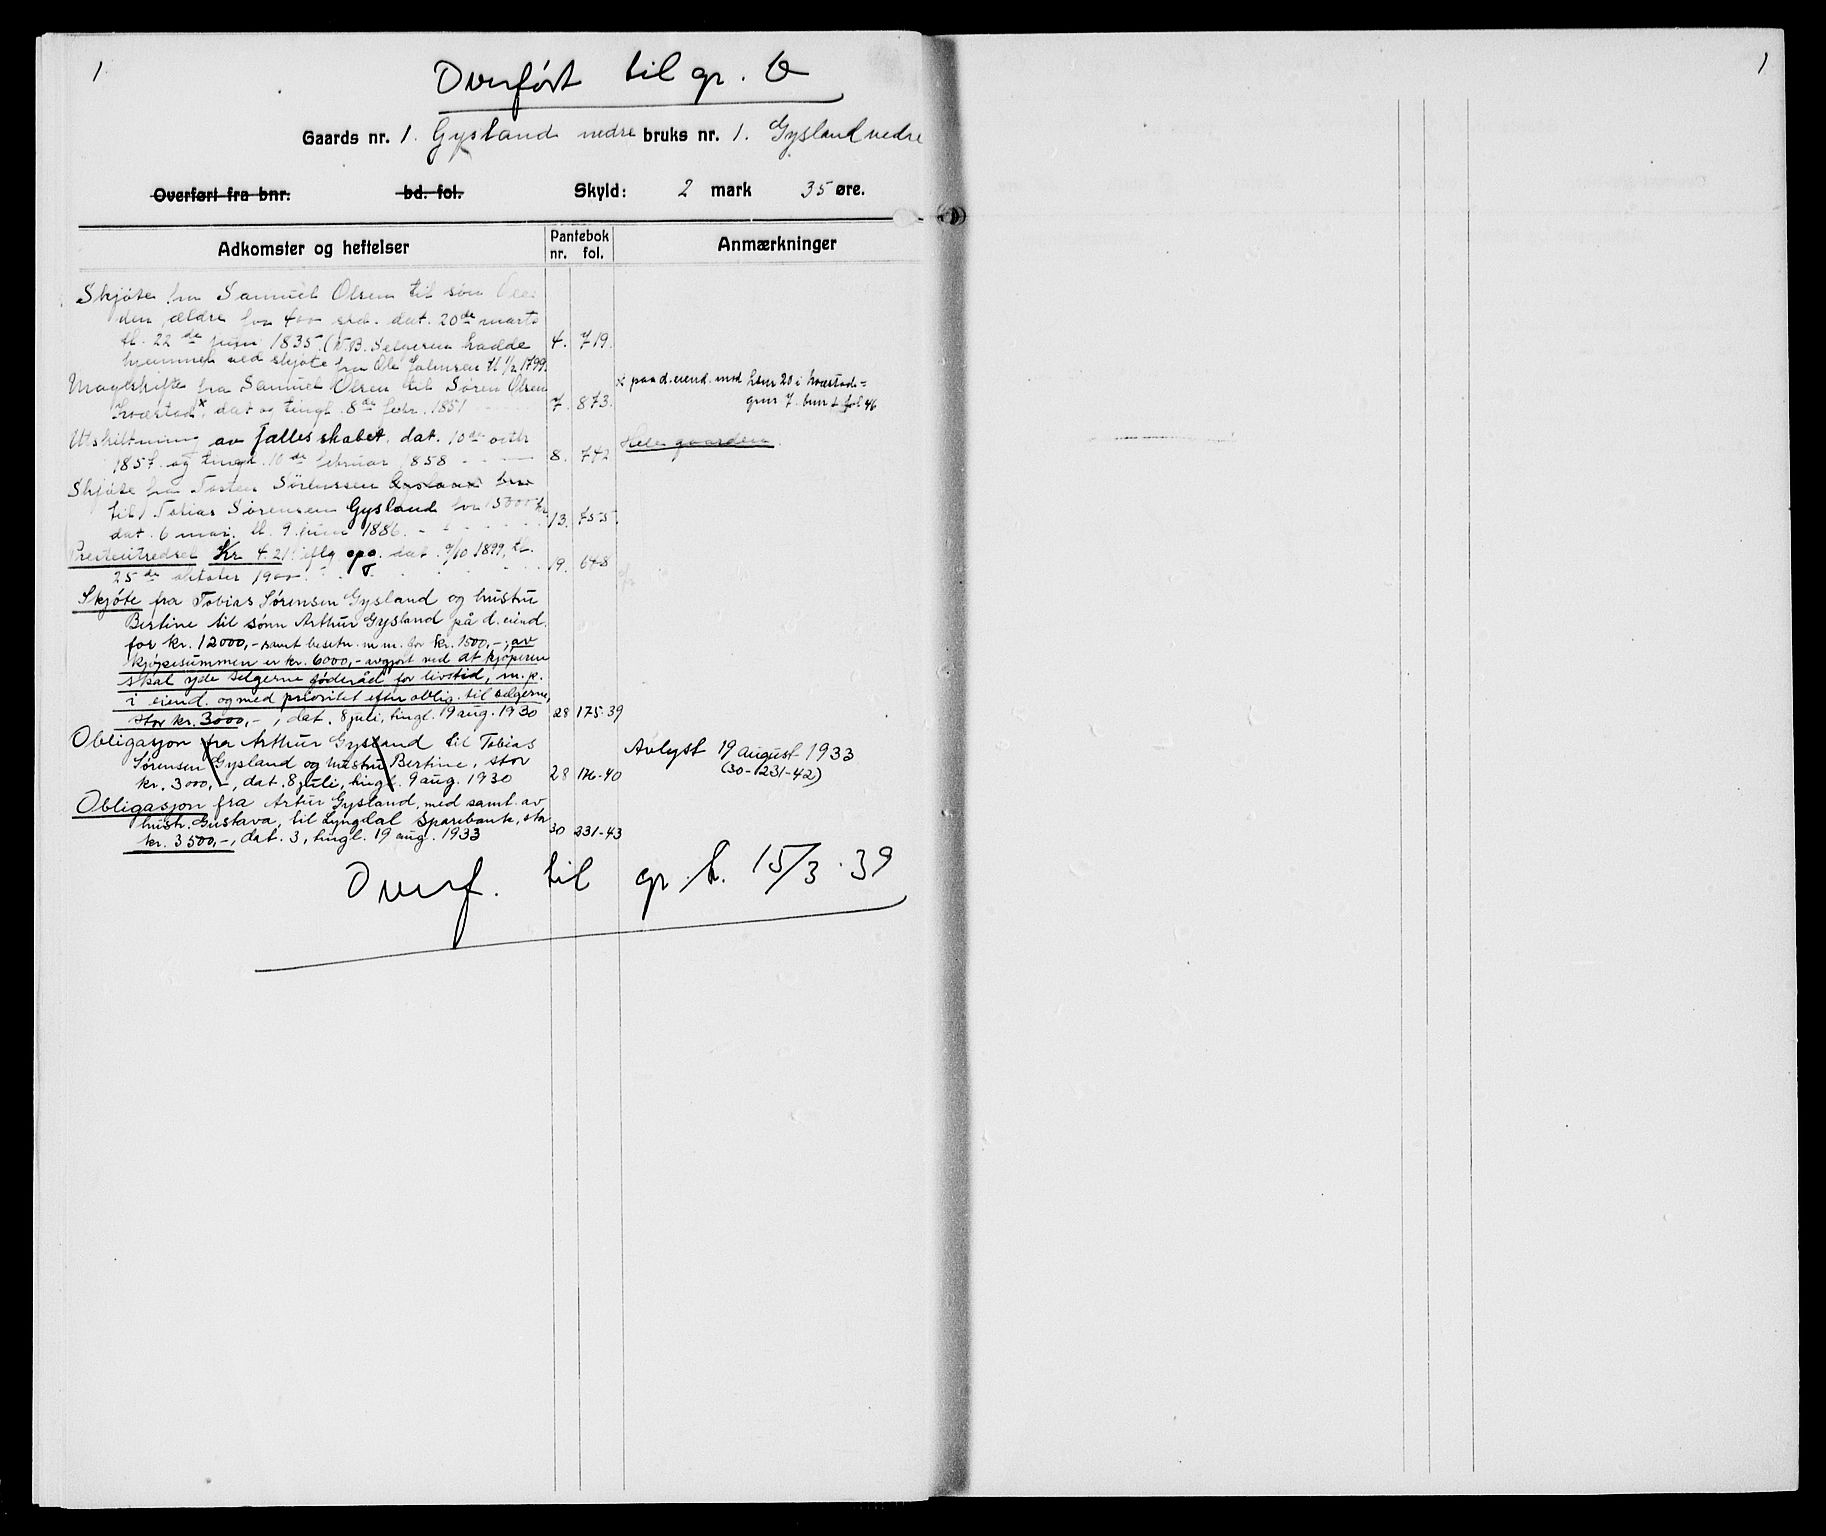 1
1
Overført til gr. b
Gaards nr. 1. Gysland nedre bruks nr. 1. Gysland nedre
Overført fra bnr. bd. fol. Skyld: 2 mark 35 øre.
Adkomster og heftelser
Pantebok
nr. fol.
Anmærkninger
Skjøte fra Samuel Olsen til søn Ole
den ældre for 400 spd. dat. 20de marts
tl. 22de juni 1835. (N.B. Selgeren hadde 4. 719.
hjemmel ved skjøte fra Ole 1799.
Mageskifte fra Samuel Olsen til Søren Olsen
Kvæstad x dat og tingl. 8de febr. 1851 7. 873.
x paa d. eiend. mod hsnr 20 i kvæstad=
gnr 7. bnr 1 fol 46
Utskiftning av fællesskabet, dat. 10de octbr
1857. og tingl. 10de februar 1858 8. 742
Hele gaarden.
Skjøte fra Torten Sørenssen Gysland
til Tobias Sørensen Gysland for 15000 kr
dat. 6 mai. tl. 9. juni 1886. 13. 755.
Presteutredsel Kr 4.21 iflg opg. dat. 9/10 1899, tl.
25de oktober 1900 19. 648
Skjøte fra Tobias Sørensen Gysland og hustru
Bertine til sønn Arthur Gysland på d. eiend.
for kr. 12000,- samt besetn. m.m. for kr. 1500,-; av
kjøpesummen er kr. 6000,- avgjort ved at kjøperen
skal yde selgerne føderåd for livstid, m. p.
i eiend. og med prioritet efter oblig. til selgerne,
stor kr. 3000,-, dat. 8 juli, tingl. 19 aug. 1930 28 175-39
Obligasjon fra Arthur Gysland til Tobias
Sørensen Gysland og hustru Bertine, stor
kr. 3000,-, dat. 8 juli, tingl. 9 aug. 1930 28 176-40
Avlyst 19 august 1933
(30-1231-42)
Obligasjon fra Artur Gysland, med samt. av
hustr. Gustava, til Lyngdal Sparebank, stor
kr. 3500,-, dat. 3, tingl. 19 aug. 1933 30 231-43
Overf. til gr. b. 15/3.39